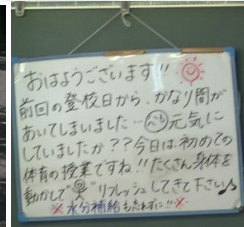 おはようございます!!
前回の登校日から、かなり間が
あいてしまいました… 元気に
していましたか??今日は初めての
体育の授業ですね!!たくさん身体を
動かして リフレッシュしてきて下さい♪
※水分補給も忘れずに!!※